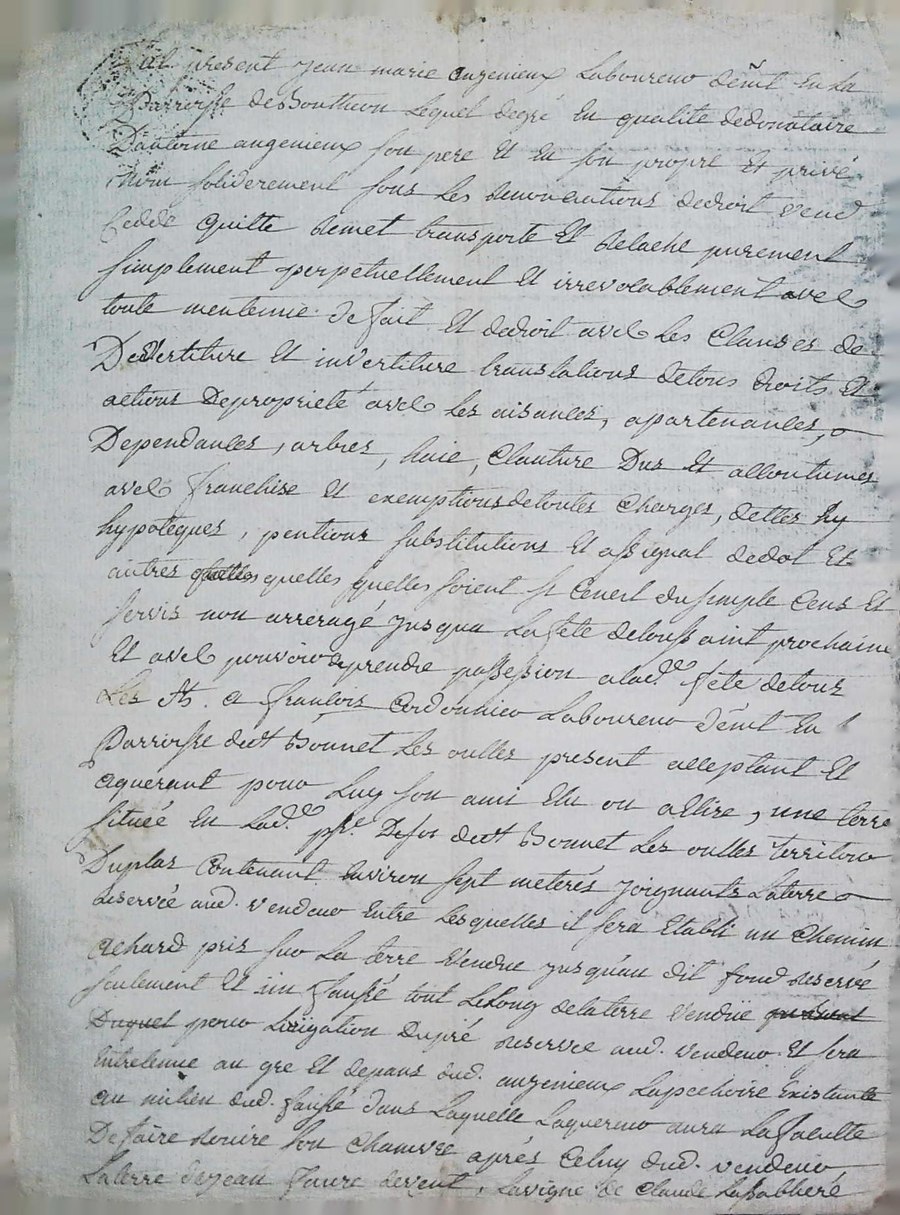 at present jean marie augenieux Laboureur dem.t en La
Parroisse de Bouthéon Lequel degré en qualité de donataire
D'antoine augenieux son pere et en son propre et privé
Nom soliderement sous Les renonciations dedroit vend
Cedde quitte remet transporte et relache purement
simplement perpetuellement et irrevocablement avec
toute mentenue de fait et dedroit avec Les Clauses de
Devertiture et invertiture translations detous droits et
actions de proprieté avec Les aisances, apartenances,
Dependances, arbres, haie, Clauture Dus et accoutumés
avec franchise et exemptions detoutes Charges, dettes hy
hypoteques, pentions substitutions et assignat dedot et
autres quelles quelles soient si Cenest du simple Cens et
servis non arreragé jusqua La fete detoussaint prochaine
et avec pouvoir deprendre possession a lad.e fete detous
Les Sts. a francois Cordonnier Laboureur dem.t en
Parroisse de st Bonnet Les oulles present acceptant et
aquerant pour Luy son ami elu ou a elire, une terre
située en Lad.e p.sse de st Bonnet Les oulles territoire
Duplat Contenant environ sept meterés joignants Laterre
reservée aud. vendeur Entre Lesquelles il sera Etabli un Chemin
achard pris sur La terre vendue jusqu'au dit fond reservé
seulement et un faussé tout Lelong delaterre vendue
Duquel pour Lirrigation dupré reservée aud. vendeur et sera
entretenue au gre et depans dud. augenieux Lapechoire Existante
au milieu dud. faussé dans Laquelle Laquereur aura Lafaculté
De faire rouire son Chamvre aprés Celuy dud. vendeur
Laterre dejean faure devent, Lavigne de Claude